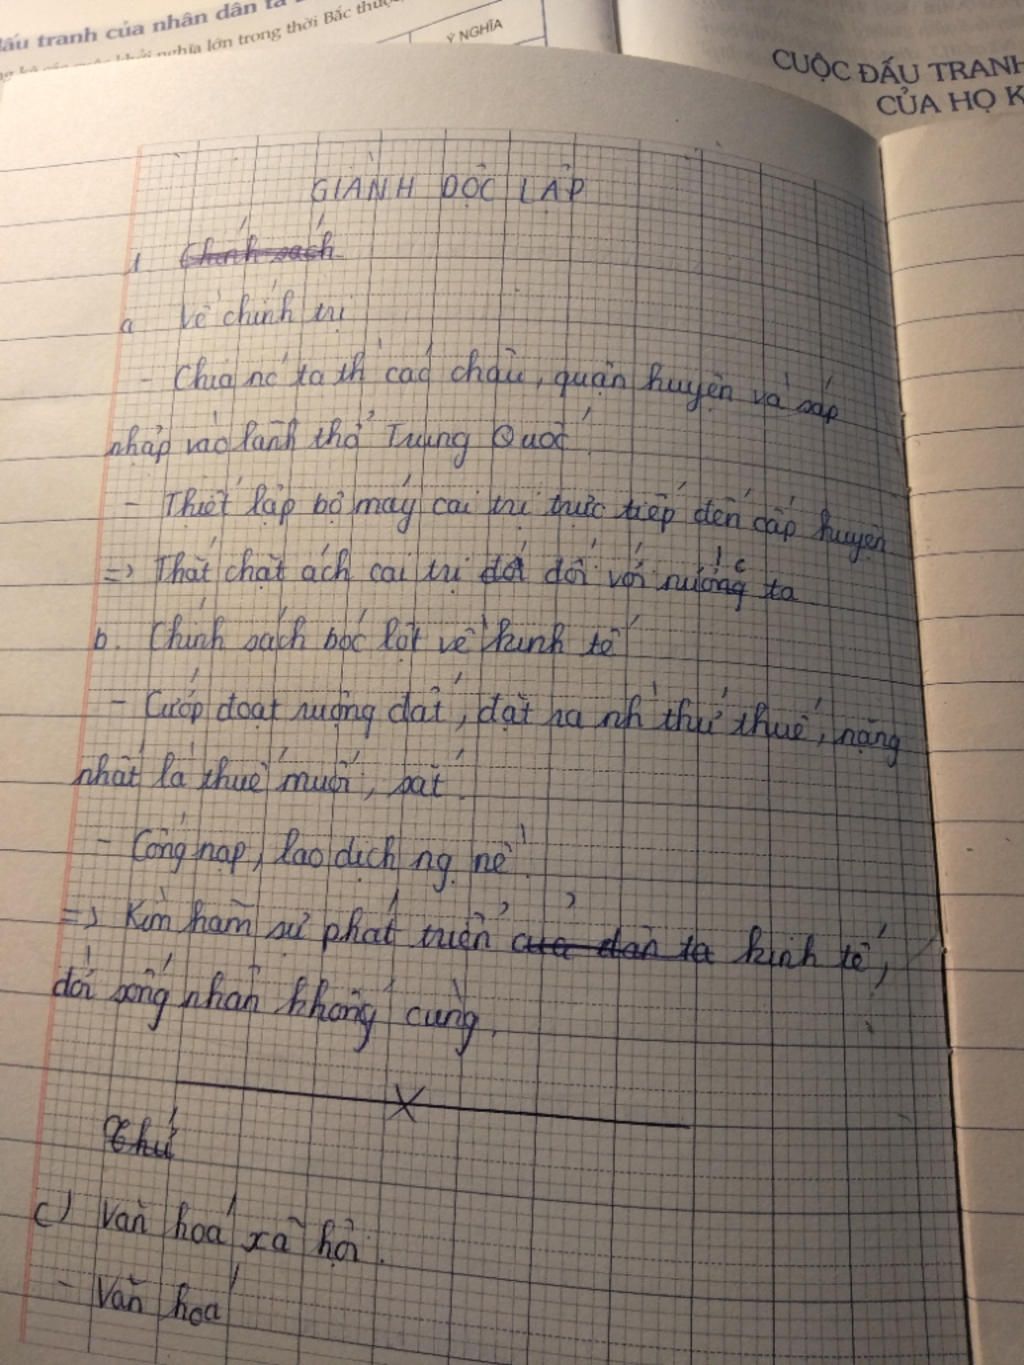 đấu tranh của nhân dân ta
khởi nghĩa lớn trong thời Bắc thuộc
Ý NGHĨA
CUỘC ĐẤU TRANH
CỦA HỌ K
GIÀNH ĐỘC LẬP
1 Chính sách
a Về chính trị
- Chia nc ta th các châu, quận huyện và sáp
nhập vào lãnh thổ Trung Quốc
- Thiết lập bộ máy cai trị trực tiếp đến cấp huyện
=> Thắt chặt ách cai trị đối đối với nước ta
b. Chính sách bóc lột về kinh tế
- Cướp đoạt ruộng đất, đặt ra nh thứ thuế, nặng
nhất là thuế muối, sắt.
- Cống nạp, lao dịch ng nề.
=> Kìm hãm sự phát triển của dân ta kinh tế,
đời sống nhân khổng cùng.
Thứ
c) Văn hoá xã hội.
- Văn hoá